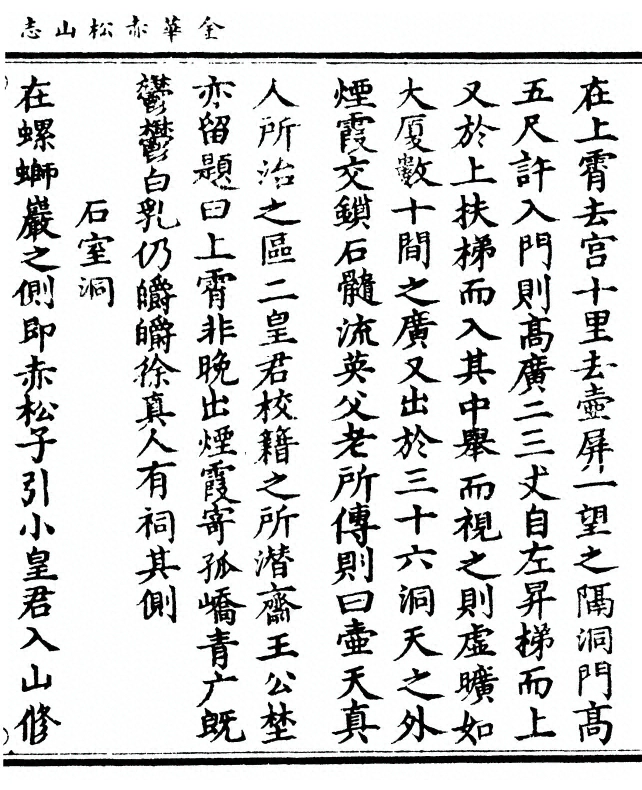 金華赤松山志
在上霄去宫十里去壺屏一望之隔洞門髙
五尺許入門則髙廣二三丈自左昇梯而上
又於上扶梯而入其中舉而視之則虛曠如
大厦數十間之廣又出於三十六洞天之外
煙霞交鎖石髓流英父老所傳則曰壺天真
人所治之區二皇君校籍之所潜齋王公埜
亦留題曰上霄非晚出煙霞寄孤嶠青广旣
鬱鬱白乳仍皭皭徐真人有祠其側
石室洞
在螺螄巖之側即赤松子引小皇君入山修